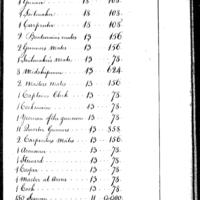 1 Gunner 18 108.
1 Sailmaker 18 108.
1 Carpenter 18 108.
2 Boatswains mates 13 156
2 Gunners Mates 13 156.
1 Sailmaker's mate 13 78.
8 Midshipmen 13 624
2 Masters Mates 13 156
1 Captains Clerk 13 78.
1 Cockswain 13 78.
1 Yeoman of the gunroom 13 78.
11 Quarter Gunners 13 858
2 Carpenters Mates 13 156
1 Armourer 13 78.
1 Steward 13 78.
1 Cooper 13 78.
1 Master at Arms 13 78.
1 Cook 13 78.
150 Seamen 11